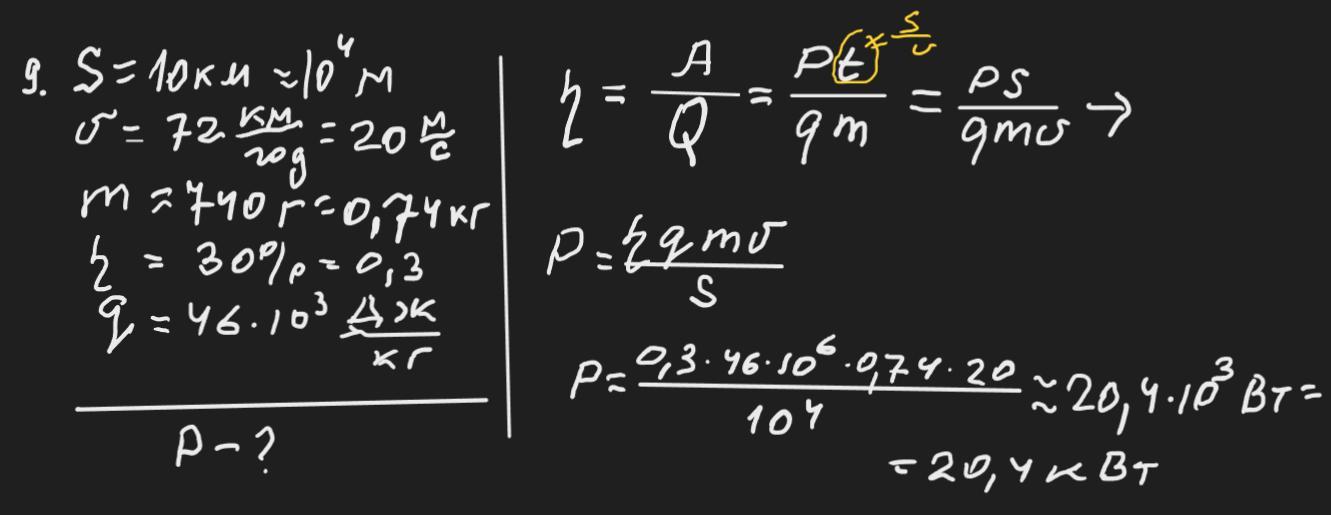 9. S = 10км = 10⁴ м
υ = 72 км/год = 20 м/с
m = 740 г = 0,74 кг
η = 30% = 0,3
q = 46·10³ Дж/кг
P - ?
η = A/Q = Pt/qm = PS/qmυ →
× S/υ
P = ηqmυ/S
P = 0,3·46·10⁶·0,74·20/10⁴ ≈ 20,4·10³ Вт =
= 20,4 кВт